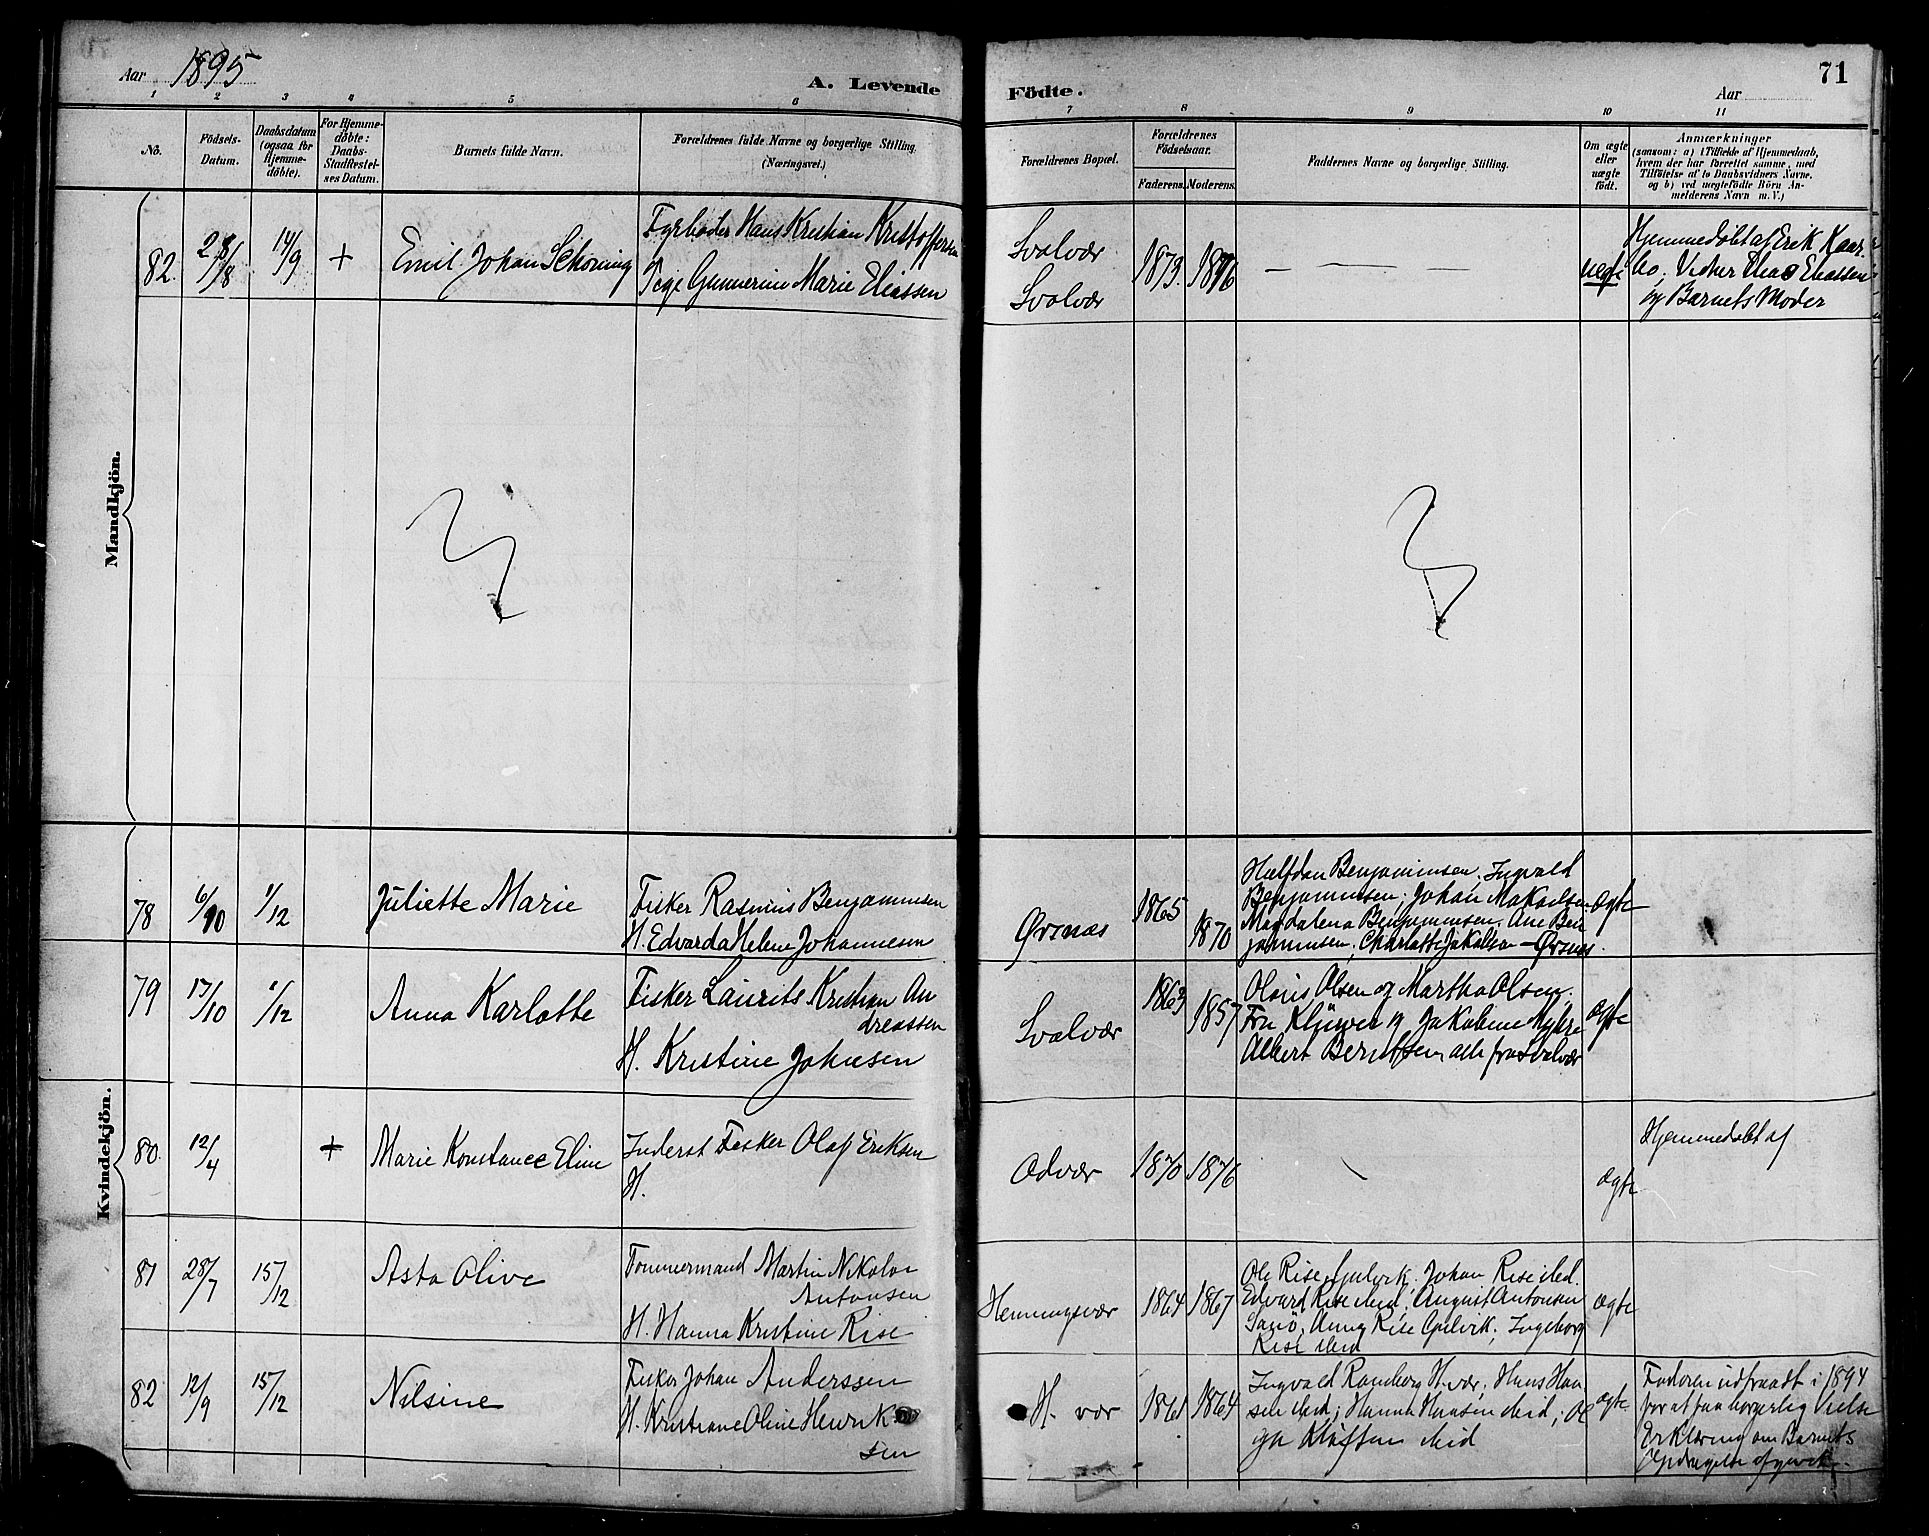 Aar 1895
A. Levende Födte.
71
Aar
1 2 3 4 5 6 7 8 9 10 11
No.
Födsels-
Datum.
Daabsdatum
(ogsaa for
Hjemme-
döbte).
For Hjemme-
döbte:
Daabs-
Stadfæstel-
ses Datum.
Barnets fulde Navn.
Forældrenes fulde Navne og borgerlige Stilling.
(Næringsvei.)
Forældrenes Bopæl.
Forældrenes
Födselsaar.
Faderens. Moderens.
Faddernes Navne og borgerlige Stilling.
Om ægte
eller
uægte
födt.
Anmærkninger
(saasom: a) i Tilfælde af Hjemmedaab,
hvem der har forrettet samme, med
Tilföielse af to Daabsvidners Navne.
og b) ved uegtefödte Börn An-
melderens Navn m. V.)
Mandkjön.
82. 28/8 14/9 + Emil Johan Schöning
Fyrbøder Hans Kristian Kristoffersen
Pige Gunnerine Marie Eliassen
Svolvær
Svolvær
1873. 1876
uegte
Hjemmedøbt af Erik Kaar-
bo. Vidner Elias Eliassen
og Barnets Moder
Kvindekjön.
78 6/10 1/12 Juliette Marie
Fisker Rasmus Benjaminsen
H. Edvarda Helene Johannesen
Ørsnæs
1865
1870
Halfdan Benjaminsen, Ingvald
Benjaminsen, Johan
Magdalena Benjaminsen, Ane Ben
jaminsen, Charlotte Jakobsen - Ørsnæs.
ægte
79 17/10 1/12 Anna Karlotte
Fisker Laurits Kristian An
dreassen
H. Kristine Johnsen
Svolvær
1863
1857
Olaus Olsen og Martha Olsen,
Fru Klüwer og Jakobine Myhre
Albert Berntsen alle fra Svolvær
ægte
80. 12/4 + Marie Konstance Eline
Inderst Fisker Olaf Eriksen
H.
Odvær
1870 1876
ægte
Hjemmedøbt af
81 28/7 15/12 Asta Olive
Tømmermand Martin Nikolai
Antonsen
H. Hanna Kristine Rise
Henningsvær
1864 1867
Ole Rise, Johan Rise ibid.
Edvard Rise ibid, August Antonsen
Anna Rise Ingeborg
Rise ibid
ægte
82 12/9 15/12 Nilsine
Fisker Johan Anderssen
H. Kristiane Oline Henrik
sen
H. vær
1861 1864
Ingvald Ramberg H.vær, Hans Han
sen ibid; Hanna Hansen ibid; Ol
ga Kloften ibid
ægte
Faderen udtraadt i 1894
for at faa borgerlig Vielse
Erklæring om Barnets
Opdragelse